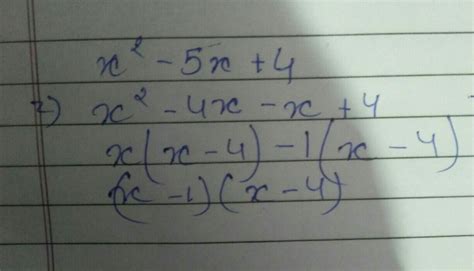 x² - 5x + 4
x² - 4x - x + 4
x(x - 4) - 1(x - 4)
(x - 1)(x - 4)